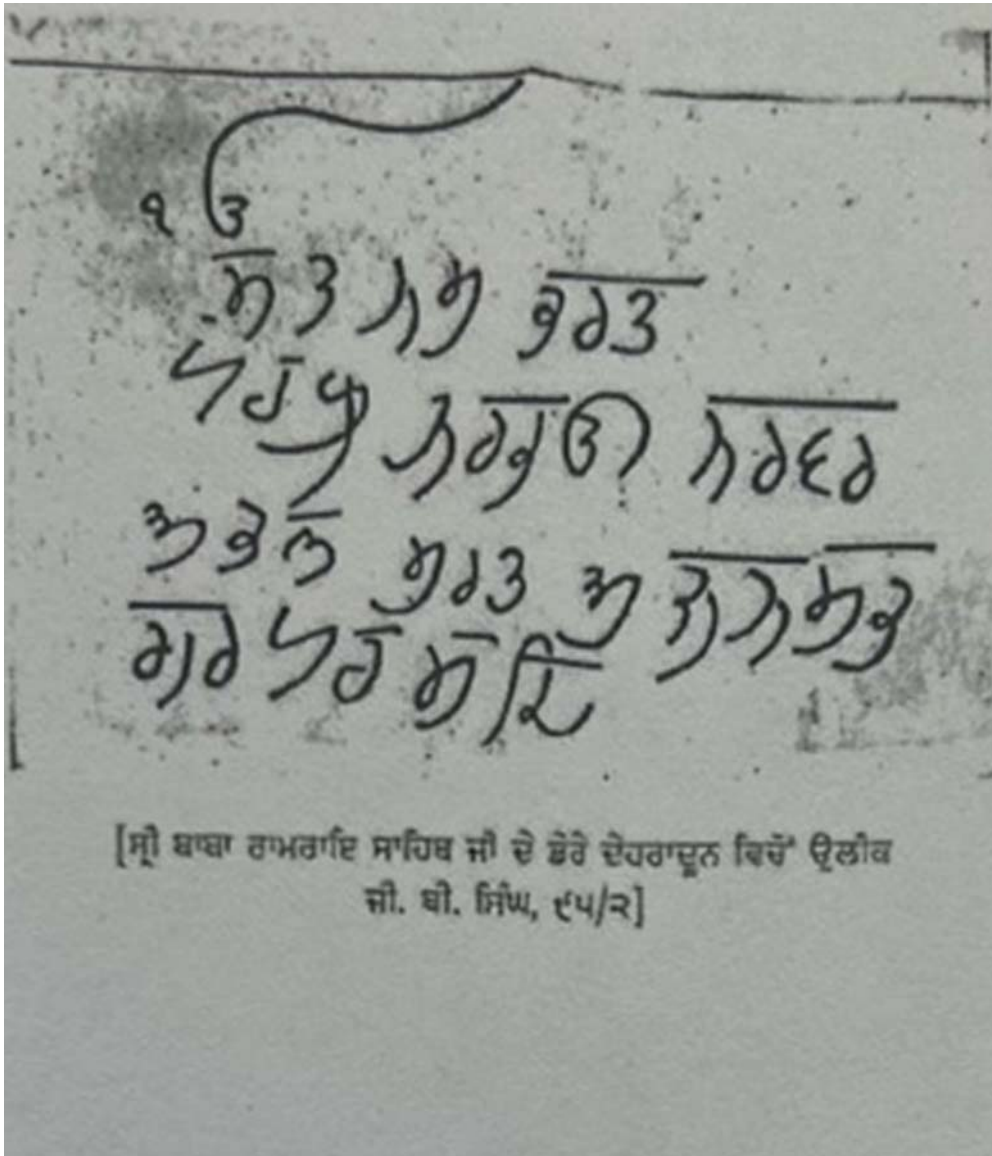 ੧ ੳ
ਸਤ ਨਮ ਕਰਤ
ਪਰਖ ਨਰਭਉ ਨਰਵਰ
ਅਕਲ ਮਰਤ ਅਜਨ ਸਭ
ਗਰ ਪਰਸਦਿ
[ਸ੍ਰੀ ਬਾਬਾ ਰਾਮਰਾਇ ਸਾਹਿਬ ਜੀ ਦੇ ਡੇਰੇ ਦੇਹਰਾਦੂਨ ਵਿਚੋਂ ਉਲੀਕ
ਜੀ. ਬੀ. ਸਿੰਘ, ੯੫/੨]